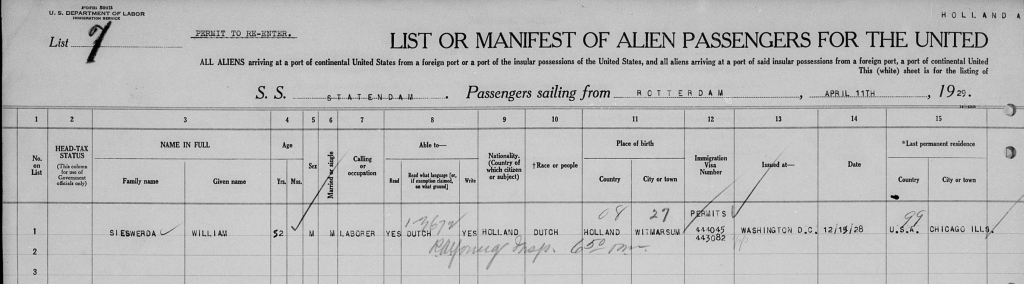 FORM 500B
U. S. DEPARTMENT OF LABOR
IMMIGRATION SERVICE
HOLLAND A
List 7
PERMIT TO RE-ENTER.
LIST OR MANIFEST OF ALIEN PASSENGERS FOR THE UNITED
ALL ALIENS arriving at a port of continental United States from a foreign port or a port of the insular possessions of the United States, and all aliens arriving at a port of said insular possessions from a foreign port, a port of continental United
This (white) sheet is for the listing of
S. S. STATENDAM. Passengers sailing from ROTTERDAM, APRIL 11TH, 1929.
1 2 3 4 5 6 7 8 9 10 11 12 13 14 15
No. on List
HEAD-TAX STATUS
(This column for use of Government officials only)
NAME IN FULL
Family name Given name
Age
Yrs. Mos.
Sex
Married or single
Calling or occupation
Able to—
Read Read what language [or, if exemption claimed, on what ground] Write
Nationality, (Country of which citizen or subject)
†Race or people
Place of birth
Country City or town
Immigration Visa Number
Issued at—
Date
*Last permanent residence
Country City or town
08 27 PERMITS 99
1 SIESWERDA WILLIAM 52 M M LABORER YES DUTCH YES HOLLAND DUTCH HOLLAND WITMARSUM 444045 WASHINGTON D.C. 12/15/28 U.S.A. CHICAGO ILLS.
443082
2 Insp.
3